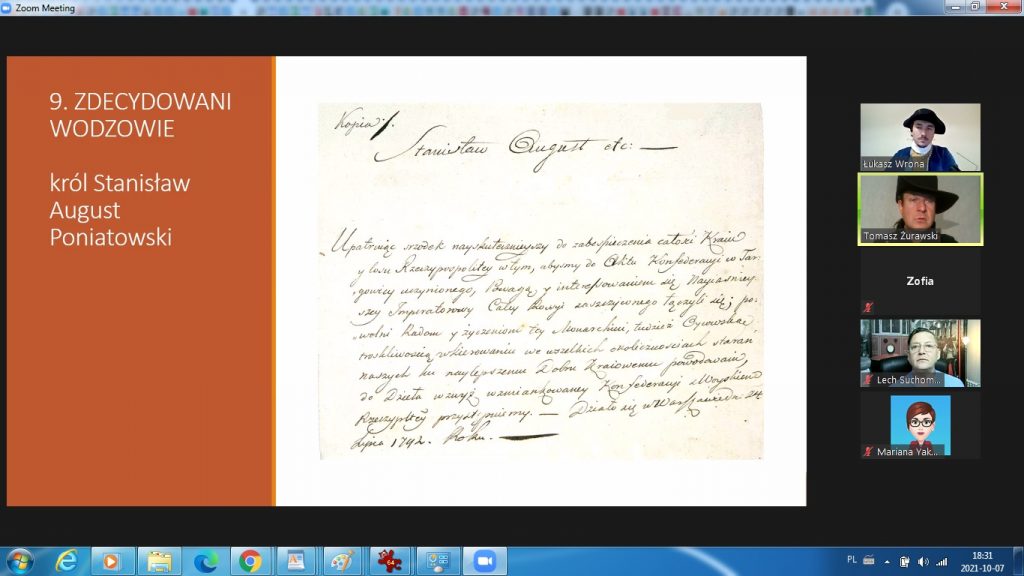 Zoom Meeting
9. ZDECYDOWANI
WODZOWIE
król Stanisław
August
Poniatowski
Kopia 1.
Stanisław August etc: —
Upatruiąc srzodek nayskutecznieyszy do zabespieczenia całosci Kraiu
y losu Rzeczypospolitey w tym, abysmy do Aktu Konfederacyi w Tar-
gowicy uczynionego, Powagą y interessowaniem się Nayiasniey-
szey Imperatorowy Całey Rossyi zaszczyconego łączyli się; po-
wolni Radom y życzeniom tey Monarchini, tudzież Oycowską
troskliwoscią w kierowaniu we wszelkich okolicznosciach staran
naszych ku naylepszemu Dobru Kraiowemu powodowani,
do Dzieła wzwyż wzmiankowaney Konfederacyi z Woyskiem
Rzeczypltey przystępuiemy. — Działo się w Warszawie da 24
Lipca 1792. Roku.
Łukasz Wrona
Tomasz Żurawski
Zofia
Lech Suchom...
Mariana Yak...
PL
18:31
2021-10-07